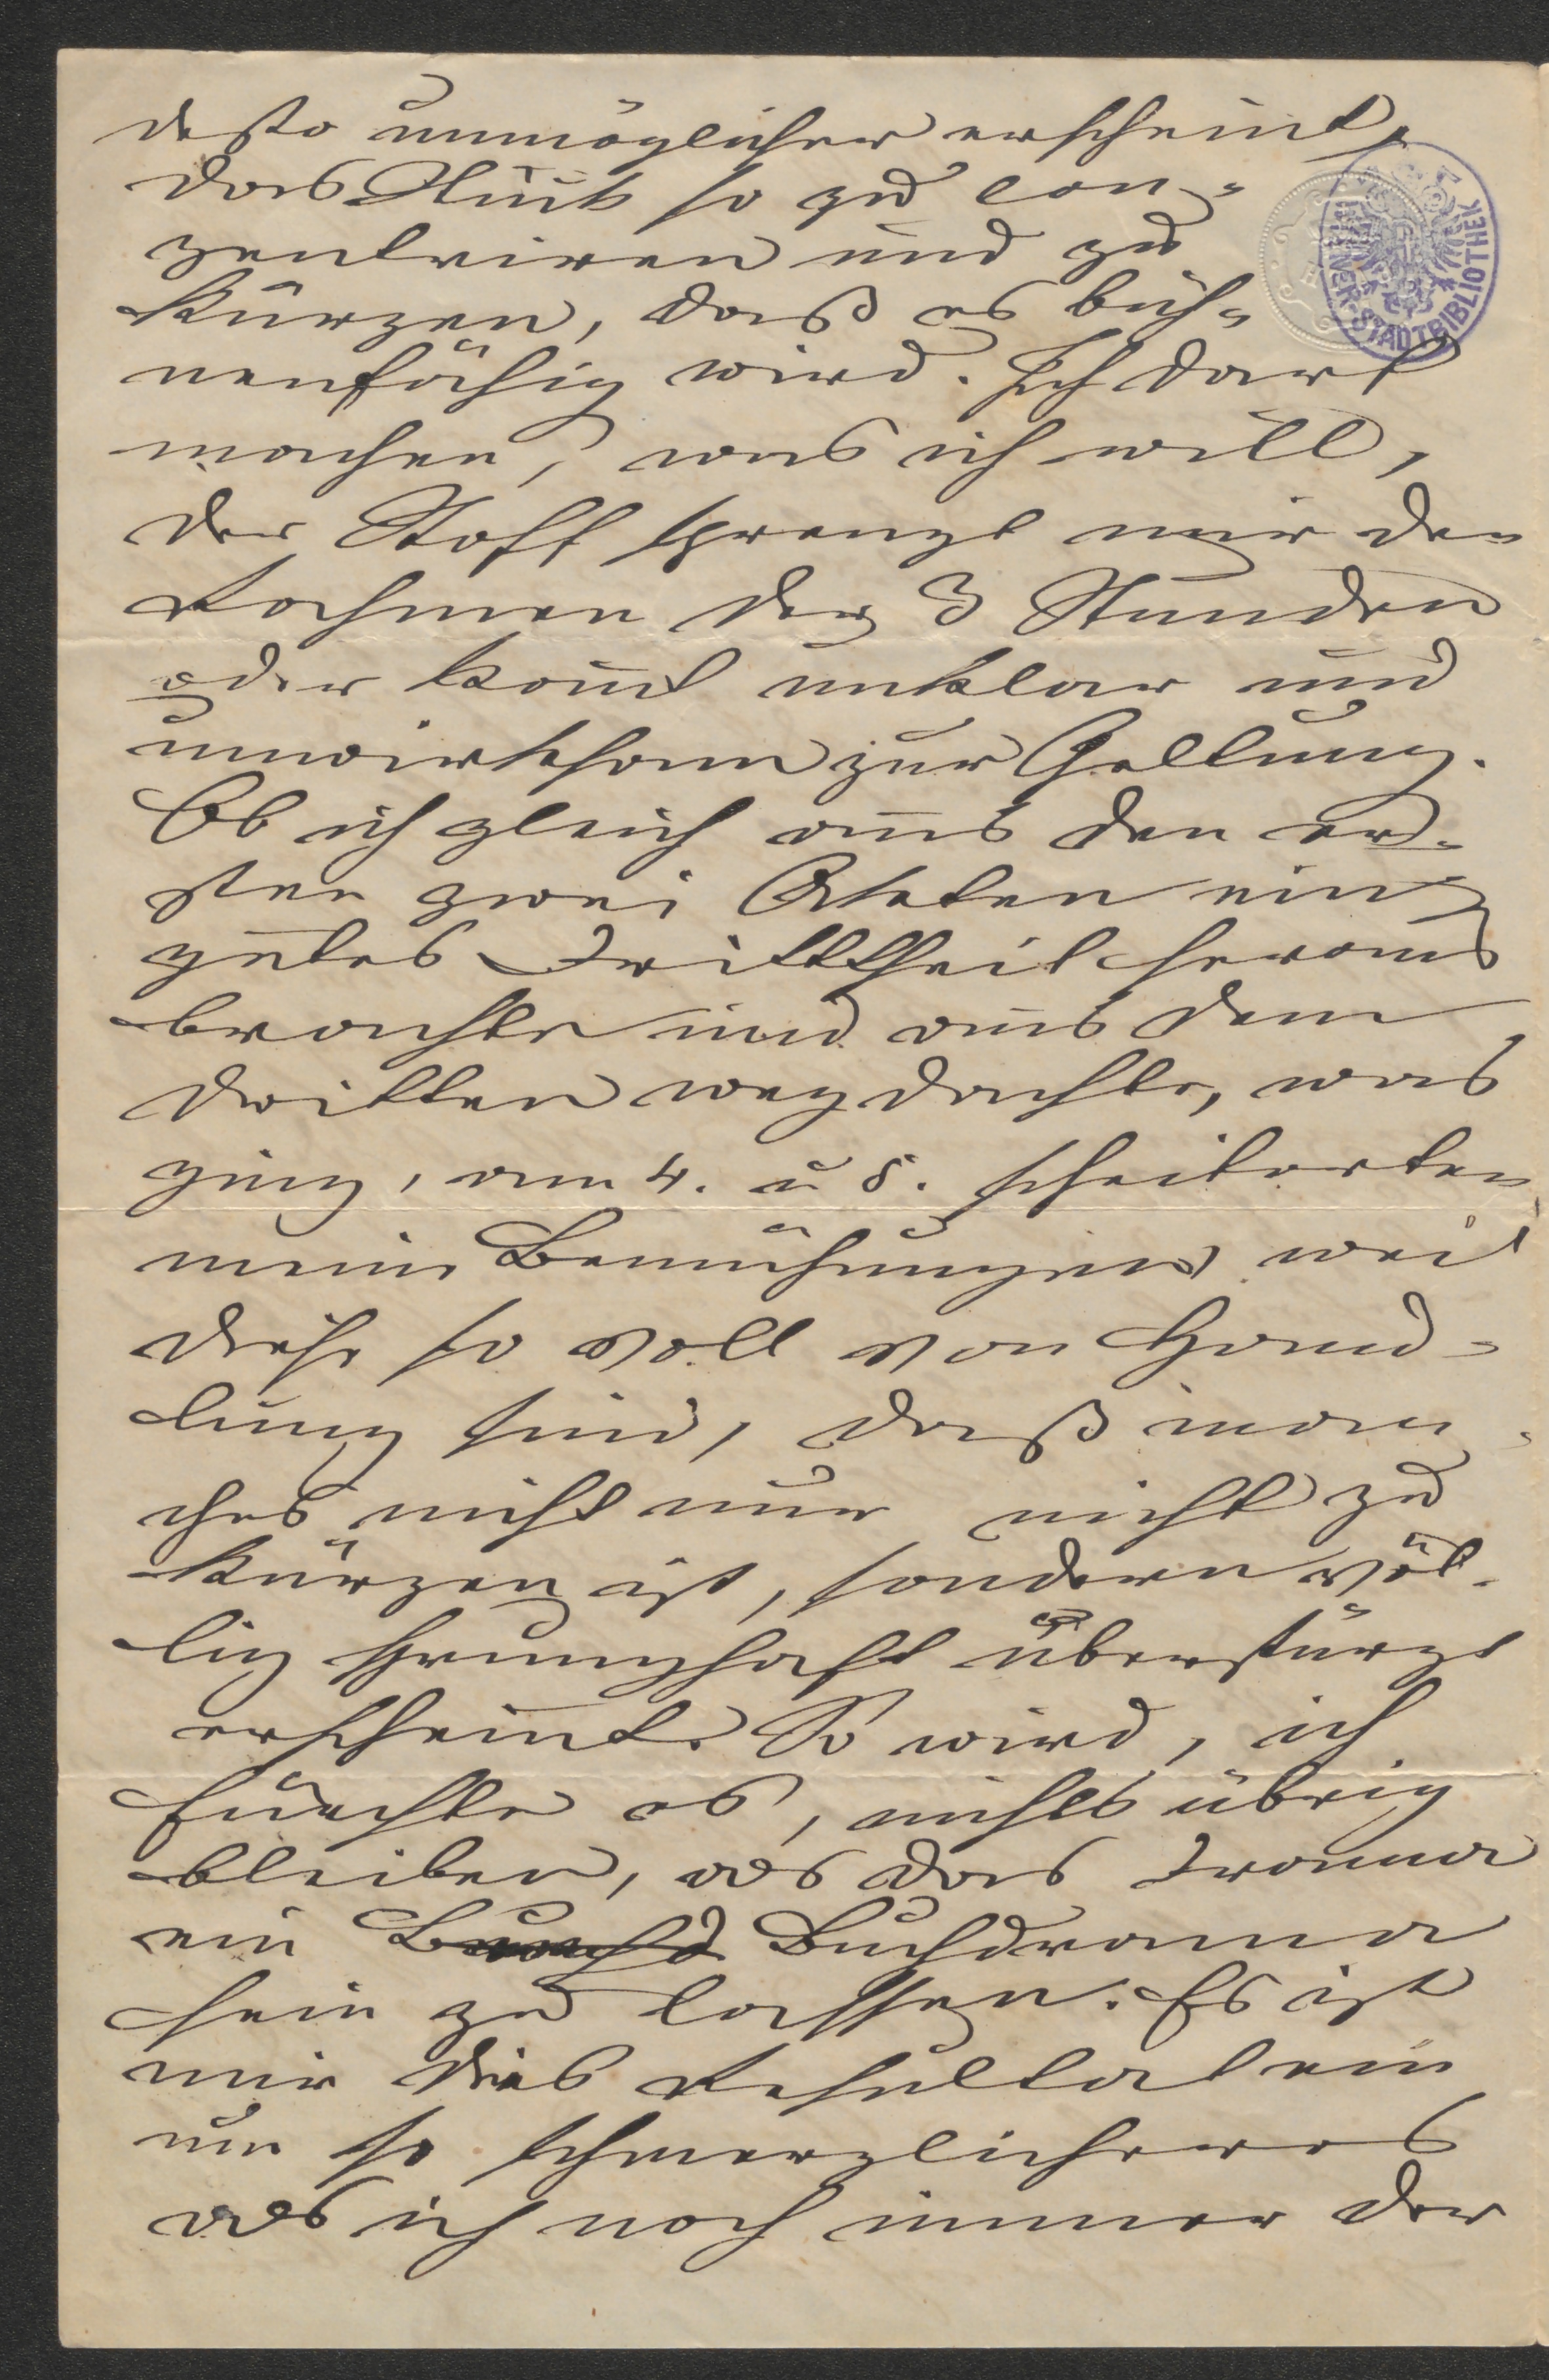 desto unmöglicher erscheint,
das Stück so zu con-
zentriren und zu
kürzen, daß es büh-
nenfähig wird. Ich darf
machen, was ich will,
der Stoff sprengt mir den
Rahmen der 3 Stunden
oder kom̄t unklar und
unwirksam zur Geltung.
Ob ich gleich aus den er-
sten zwei Akten ein
gutes Dritttheil heraus
brachte und aus dem
dritten wegdachte, was
ging, am 4. u 5. scheiterten
meine Bemühungen, weil
diese so voll von Hand-
lung sind, daß man-
ches nicht nur nicht zu
kürzen ist, sondern völ-
lig sprunghaft überstürzt
erscheint. So wird, ich
fürchte es, nichts übrig
bleiben, als das Drama
ein Buchdrama
sein zu lassen. Es ist
mir dies Resultat ein
um so schmerzlicheres
als ich noch immer der
WIENER STADTBIBLIOTHEK